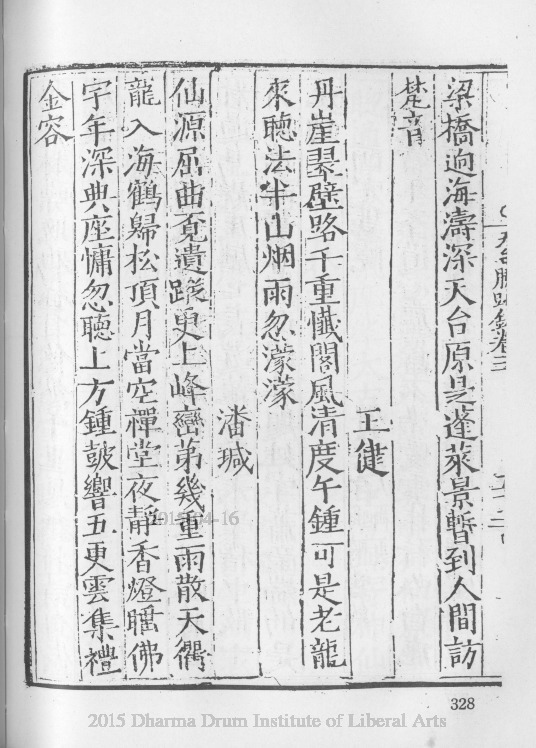 梁橋逈海濤深天台原是蓬萊景暫到人間訪
梵音
王健
丹崖翠壁路千重懺閣風清度午鍾可是老龍
來聽法半山烟雨忽濛濛
潘瑊
仙源屈曲覓遺蹤更上峰巒第幾重雨散天衢
龍入海鶴歸松頂月當空禪堂夜靜香燈
佛
宇年深典座慵忽聽上方鍾鼓響五更雲集禮
金容
328
2015 Dharma Drum Institute of Liberal Arts